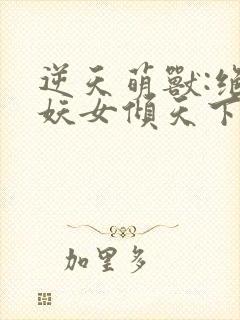 逆天萌獸:絕
妖女傾天下
加里多